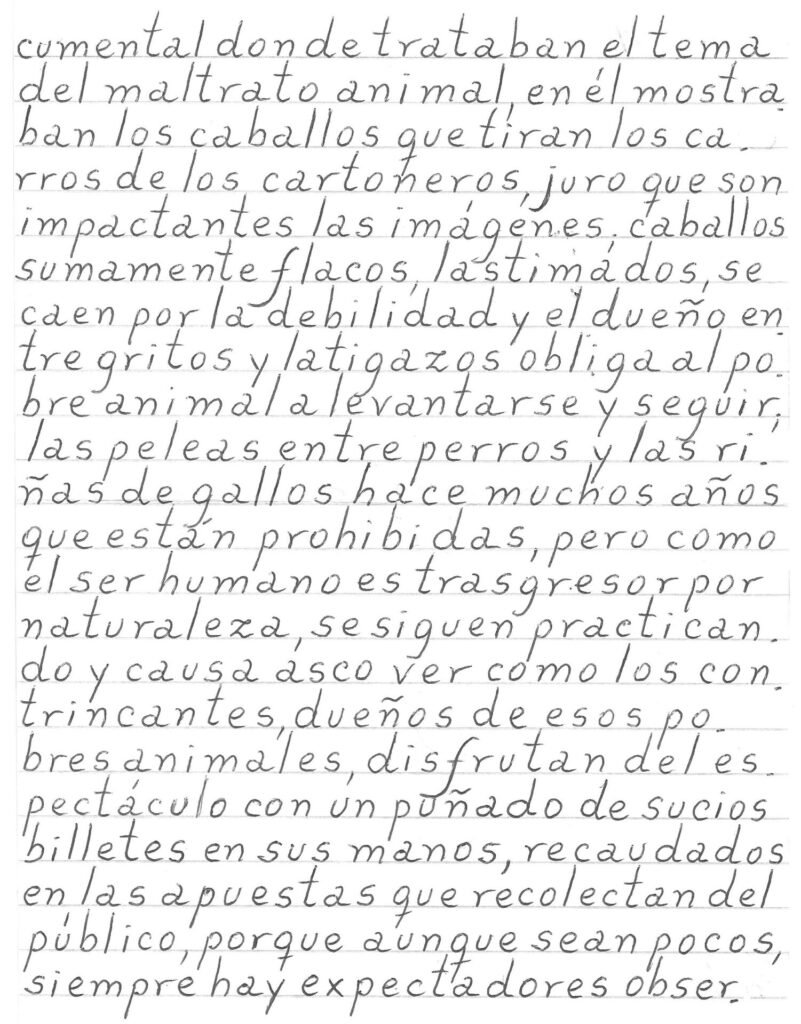 cumental donde trataban el tema
del maltrato animal, en él mostra.
ban los caballos que tiran los ca.
rros de los cartoneros, juro que son
impactantes las imágenes, caballos
sumamente flacos, lastimados, se
caen por la debilidad y el dueño en.
tre gritos y latigazos obliga al po.
bre animal a levantarse y seguir;
las peleas entre perros y las ri.
ñas de gallos hace muchos años
que están prohibidas, pero como
el ser humano es trasgresor por
naturaleza, se siguen practican.
do y causa asco ver como los con.
trincantes, dueños de esos po.
bres animales, disfrutan del es.
pectáculo con un puñado de sucios
billetes en sus manos, recaudados
en las apuestas que recolectan del
público, porque aunque sean pocos,
siempre hay expectadores obser.